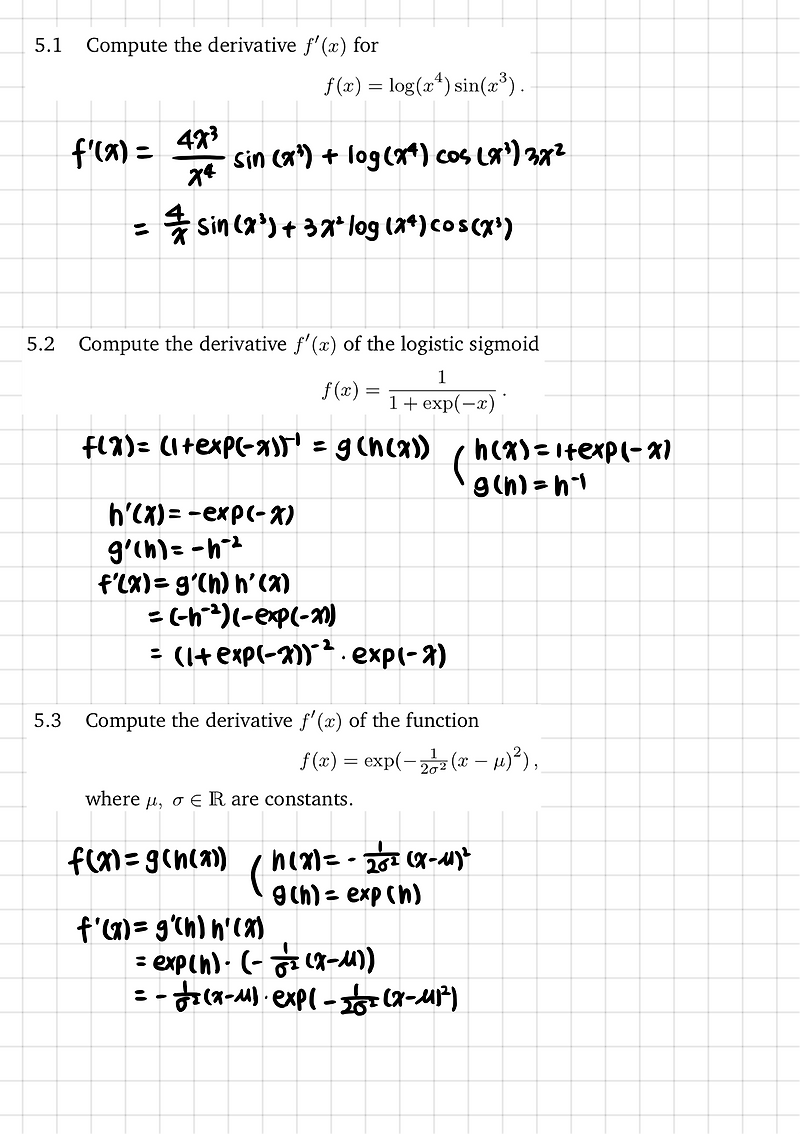 5.1 Compute the derivative f′(x) for
f(x) = log(x⁴) sin(x³) .
f'(x) = 4x³/x⁴ sin(x³) + log(x⁴) cos(x³) 3x²
= 4/x sin(x³) + 3x² log(x⁴) cos(x³)
5.2 Compute the derivative f′(x) of the logistic sigmoid
f(x) = 1/(1 + exp(−x)) .
f(x) = (1+exp(-x))⁻¹ = g(h(x)) ( h(x) = 1+exp(-x)
g(h) = h⁻¹
h'(x) = -exp(-x)
g'(h) = -h⁻²
f'(x) = g'(h) h'(x)
= (-h⁻²)(-exp(-x))
= (1+exp(-x))⁻² · exp(-x)
5.3 Compute the derivative f′(x) of the function
f(x) = exp(−1/2σ² (x − μ)²) ,
where μ, σ ∈ ℝ are constants.
f(x) = g(h(x)) ( h(x) = - 1/2σ² (x-μ)²
g(h) = exp(h)
f'(x) = g'(h) h'(x)
= exp(h) · (- 1/σ² (x-μ))
= - 1/σ² (x-μ) · exp(- 1/2σ² (x-μ)²)